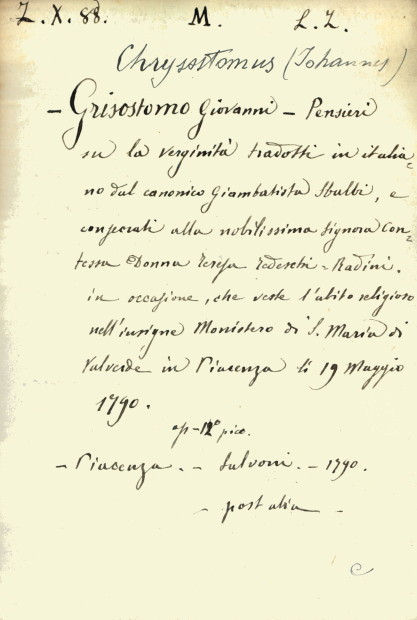 Z.X.88. M. L.L.
Chrysostomus (Iohannes)
– Grisostomo Giovanni – Pensieri
su la verginità tradotti in italia=
no dal canonico Giambatista Sbalbi, e
consecrati alla nobilissima signora Con=
tessa Donna Teresa Tedeschi=Radini.
in occasione, che veste l'abito religioso
nell'insigne Monistero di S. Maria di
Valverde in Piacenza li 19 Maggio
1790.
op – 12º picc.
– Piacenza. – Salvoni. – 1790.
– post alia –
C